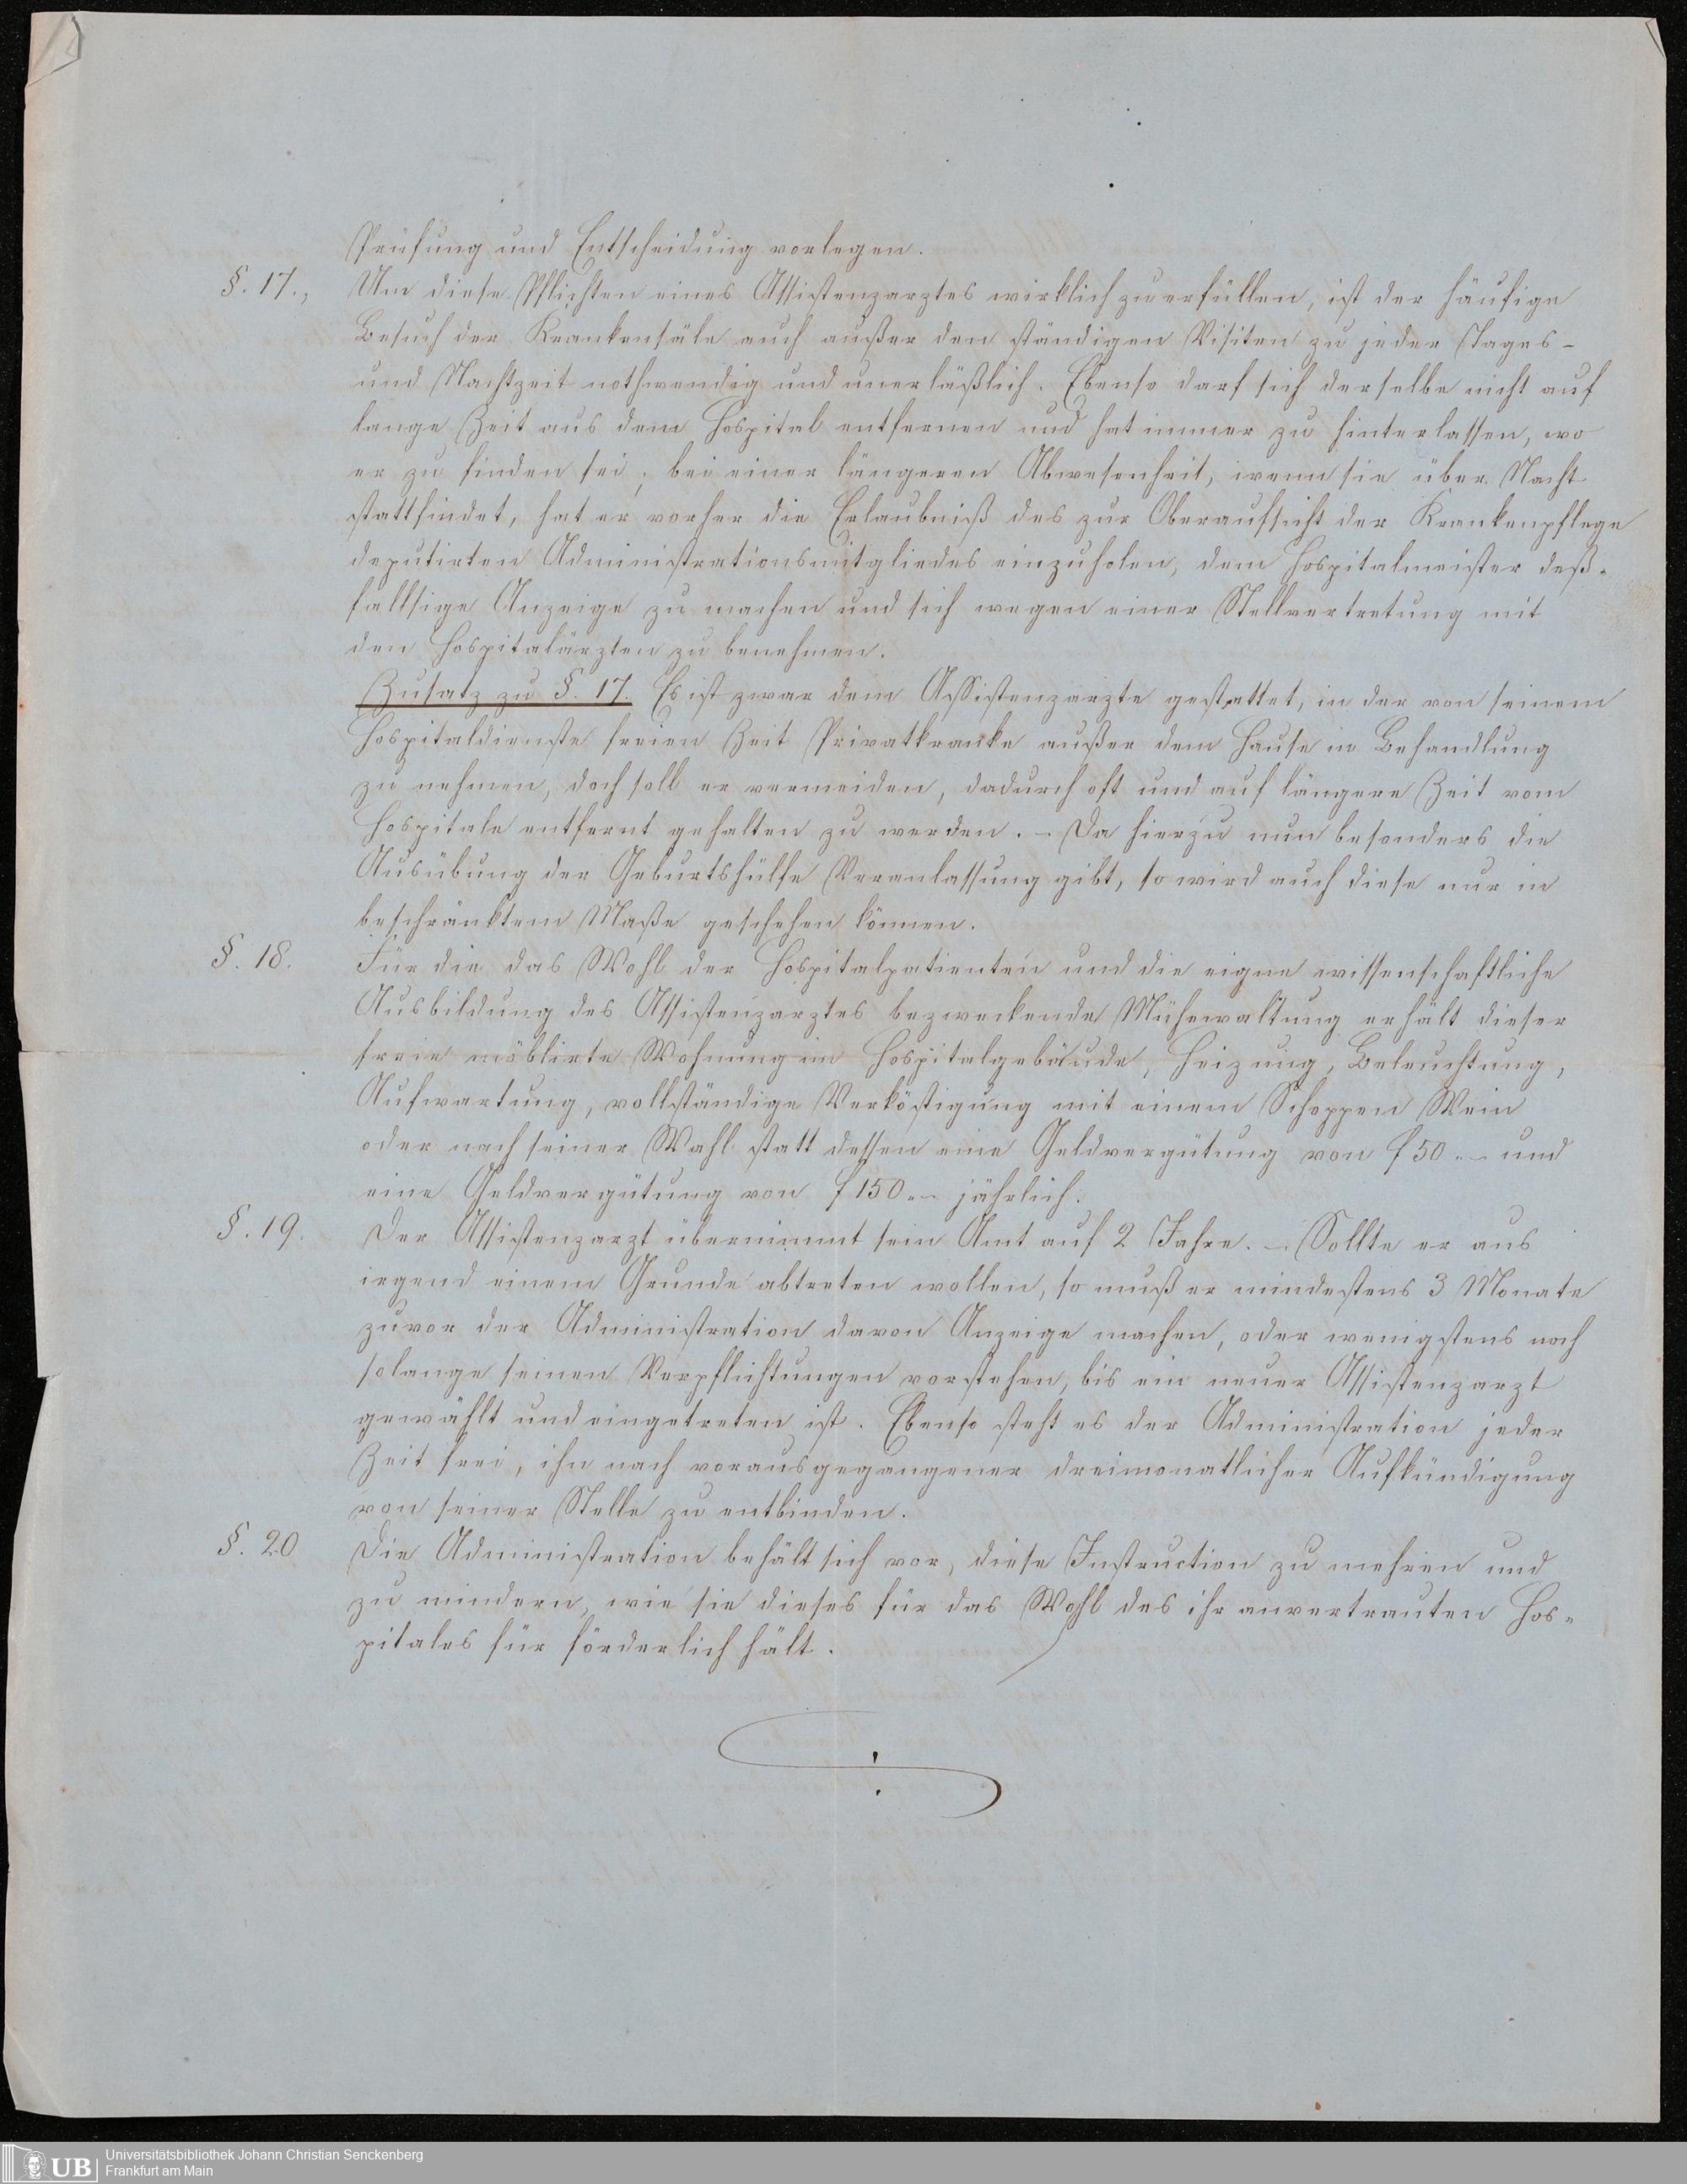 Prüfung und Entscheidung vorlegen.
§. 17., Um diese Pflichten eines Assistenzarztes wirklich zu erfüllen, ist der häufige
Besuch der Krankensäle auch außer den ständigen Visiten zu jeder Tages-
und Nachtzeit nothwendig und unerläßlich. Ebenso darf sich derselbe nicht auf
lange Zeit aus dem Hospital entfernen und hat immer zu hinterlassen, wo
er zu finden sei; bei einer längeren Abwesenheit, wenn sie über Nacht
stattfindet, hat er vorher die Erlaubniß des zur Oberaufsicht der Krankenpflege
deputirten Administrationsmitgliedes einzuholen, dem Hospitalmeister deß-
fallsige Anzeige zu machen und sich wegen einer Stellvertretung mit
den Hospitalärzten zu benehmen.
Zusatz zu §. 17. Es ist zwar dem Assistenzarzte gestattet, in der von seinem
Hospitaldienste freien Zeit Privatkranke außer dem Hause in Behandlung
zu nehmen, doch soll er vermeiden, dadurch oft und auf längere Zeit vom
Hospitale entfernt gehalten zu werden. – Da hierzu nun besonders die
Ausübung der Geburtshülfe Veranlassung gibt, so wird auch diese nur in
beschränktem Maße geschehen können.
§. 18. Für die das Wohl der Hospitalpatienten und die eigne wissenschaftliche
Ausbildung des Assistenzarztes bezweckende Mühewaltung erhält dieser
freie möblirte Wohnung im Hospitalgebäude, Heizung, Beleuchtung,
Aufwartung, vollständige Verköstigung mit einem Schoppen Wein
oder nach seiner Wahl statt dessen eine Geldvergütung von f 50.– und
eine Geldvergütung von f 150.– jährlich.
§. 19. Der Assistenzarzt übernimmt sein Amt auf 2 Jahre. – Sollte er aus
irgend einem Grunde abtreten wollen, so muß er mindestens 3 Monate
zuvor der Administration davon Anzeige machen, oder wenigstens noch
solange seinen Verpflichtungen vorstehen, bis ein neuer Assistenzarzt
gewählt und eingetreten ist. Ebenso steht es der Administration jeder
Zeit frei, ihn nach vorausgegangener dreimonatlicher Aufkündigung
von seiner Stelle zu entbinden.
§. 20 Die Administration behält sich vor, diese Instruction zu mehren und
zu mindern, wie sie dieses für das Wohl des ihr anvertrauten Hos-
pitales für förderlich hält.
UB
Universitätsbibliothek Johann Christian Senckenberg
Frankfurt am Main